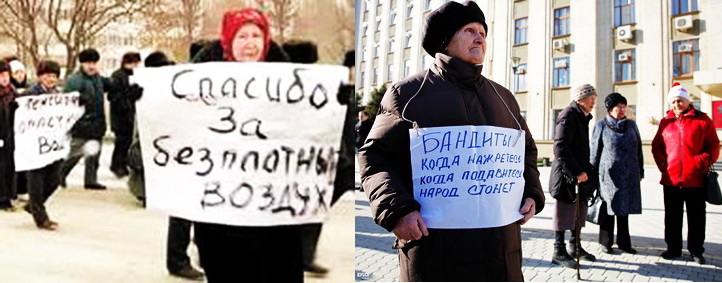 Спасибо
за
безплотный
воздух
БАНДИТЫ
КОГДА НАЖРЕТЕСЬ
КОГДА ПОДАВИТЕСЬ
НАРОД СТОНЕТ